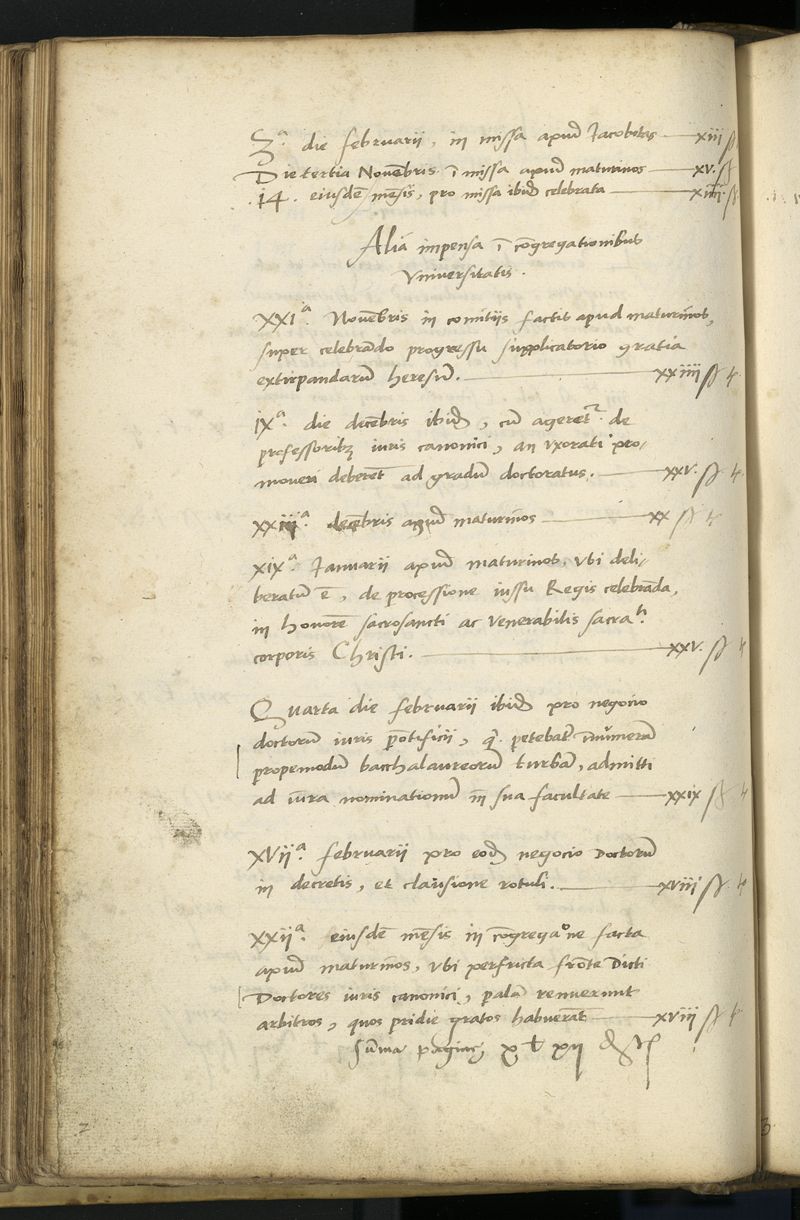 3ª. die februarii, in missa apud Iacobitas — xiii ẞ
Die tertia Novēbris ī missa apud maturinos — xv. ẞ
.14. eiusdē mēsis, pro missa ibid celebrata — xiiii. ẞ
Alia impensa ī cōgregationibus
Vniversitatis.
XXIª. Novēbris in comitiis factis apud maturinos,
super celebrādo progressu supplicatorio gratia
extirpandarū heresiū. — xxiiii ẞ
IXª. die decēbris ibid, cū ageretr de
professoribz iuris canonici, an vxorati pro-
moveri deberēt ad gradū doctoratus. — xxv. ẞ
xxiiiª. decēbris apud maturinos — xx ẞ
xixª. Ianuarii apud maturinos, vbi deli-
beratū ē, de processione iussu Regis celebrāda,
in honorē sacrosancti ac venerabilis sacra^ti
corporis Christi. — xxv. ẞ
Quarta die februarii ibid pro negocio
doctorū iuris pōtificii, q. petebāt īnumerā
propemodū bacchalaureorū turbā, admitti
ad iura nominationū in sua facultate — xxix ẞ
XVIIª. februarii pro eod negocio Doctorū
in decretis, et clausione rotuli. — xviii ẞ
xxiiª. eiusdē mēsis in cōgregaᵒne facta
apud maturinos, vbi perfricta frōte Dicti
Doctores iuris canonici, palā renuerunt
arbitros, quos pridie gratos habuerāt — xviii ẞ
Sūma paginę xii
2
3